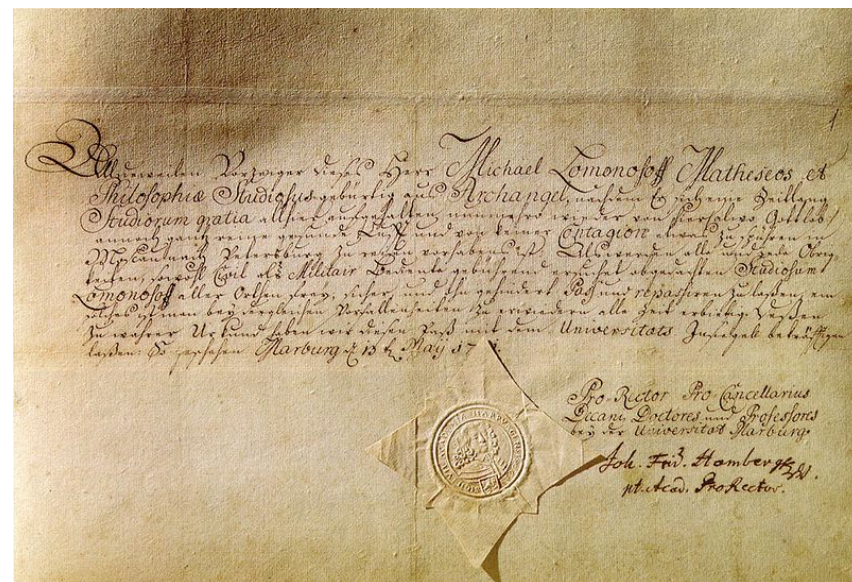 1
Alldieweilen Vorzeiger dieses Herr Michael Lomonosoff Matheseos et
Philosophiæ Studiosus gebürtig aus Archangel, nachdem Er sich eine Zeitlang
Studiorum gratia allhier aufgehalten, nunmehro wieder von hier allwo Gottlob!
annoch ganz reine gesunde Luft und von keiner Contagion etwas zu spühren in
Moscau nach Petersburg zu vorhabens ist. Als werden alle und jede Obrig-
keiten, sowohl Civil als Militair Bediente gebührend ersucht obgedachten Studiosum
Lomonosoff aller Orthen frey, sicher, und ohngehindert Pass und repassiren zu lassen, ein
solches ist man bey dergleichen Vorfallenheiten zu erwiedern alle Zeit erbietig. Dessen
zu wahrer Urkund haben wir diesen Pass mit dem Universitäts Insiegel bekräfftigen
lassen. So geschehen Marburg d 13 May 17
Pro-Rector Pro-Cancellarius
Decani, Doctores und Professores
bey der Universität Marburg.
Joh. Frid. Homberg
pt. Acad. ProRector.